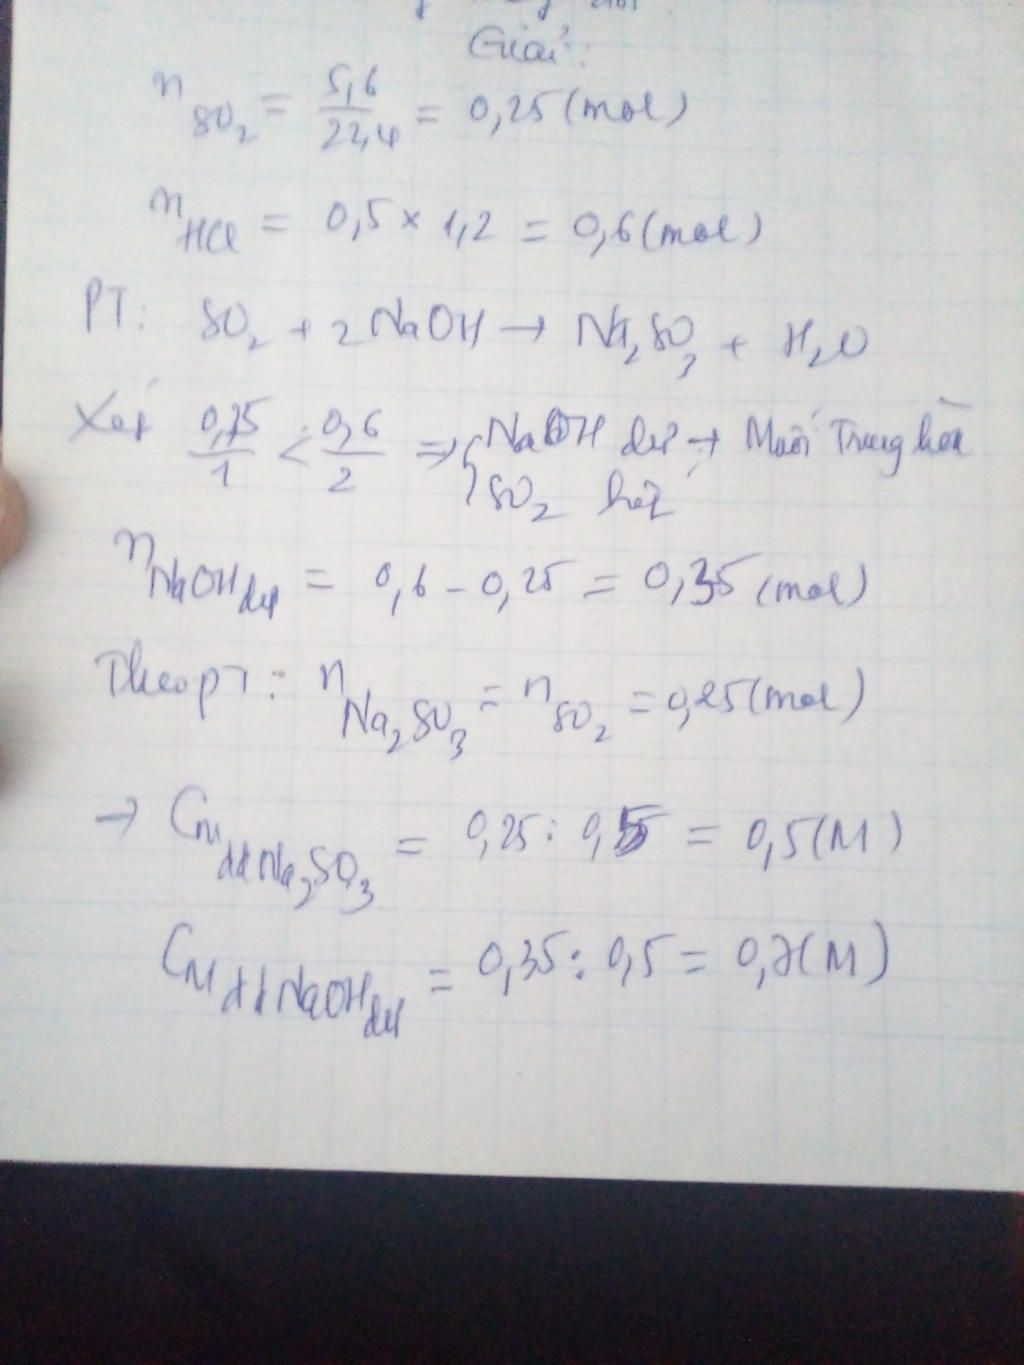 Giải:
n SO2 = 5,6/22,4 = 0,25 (mol)
n HCl = 0,5 x 1,2 = 0,6 (mol)
PT: SO2 + 2NaOH → Na2SO3 + H2O
Xét 0,25/1 < 0,6/2 ⇒ { NaOH dư → Muối Trung hòa
SO2 hết
n NaOH dư = 0,6 - 0,25 = 0,35 (mol)
Theo PT: n Na2SO3 = n SO2 = 0,25 (mol)
→ CM dd Na2SO3 = 0,25 : 0,5 = 0,5 (M)
CM dd NaOH dư = 0,35 : 0,5 = 0,7 (M)